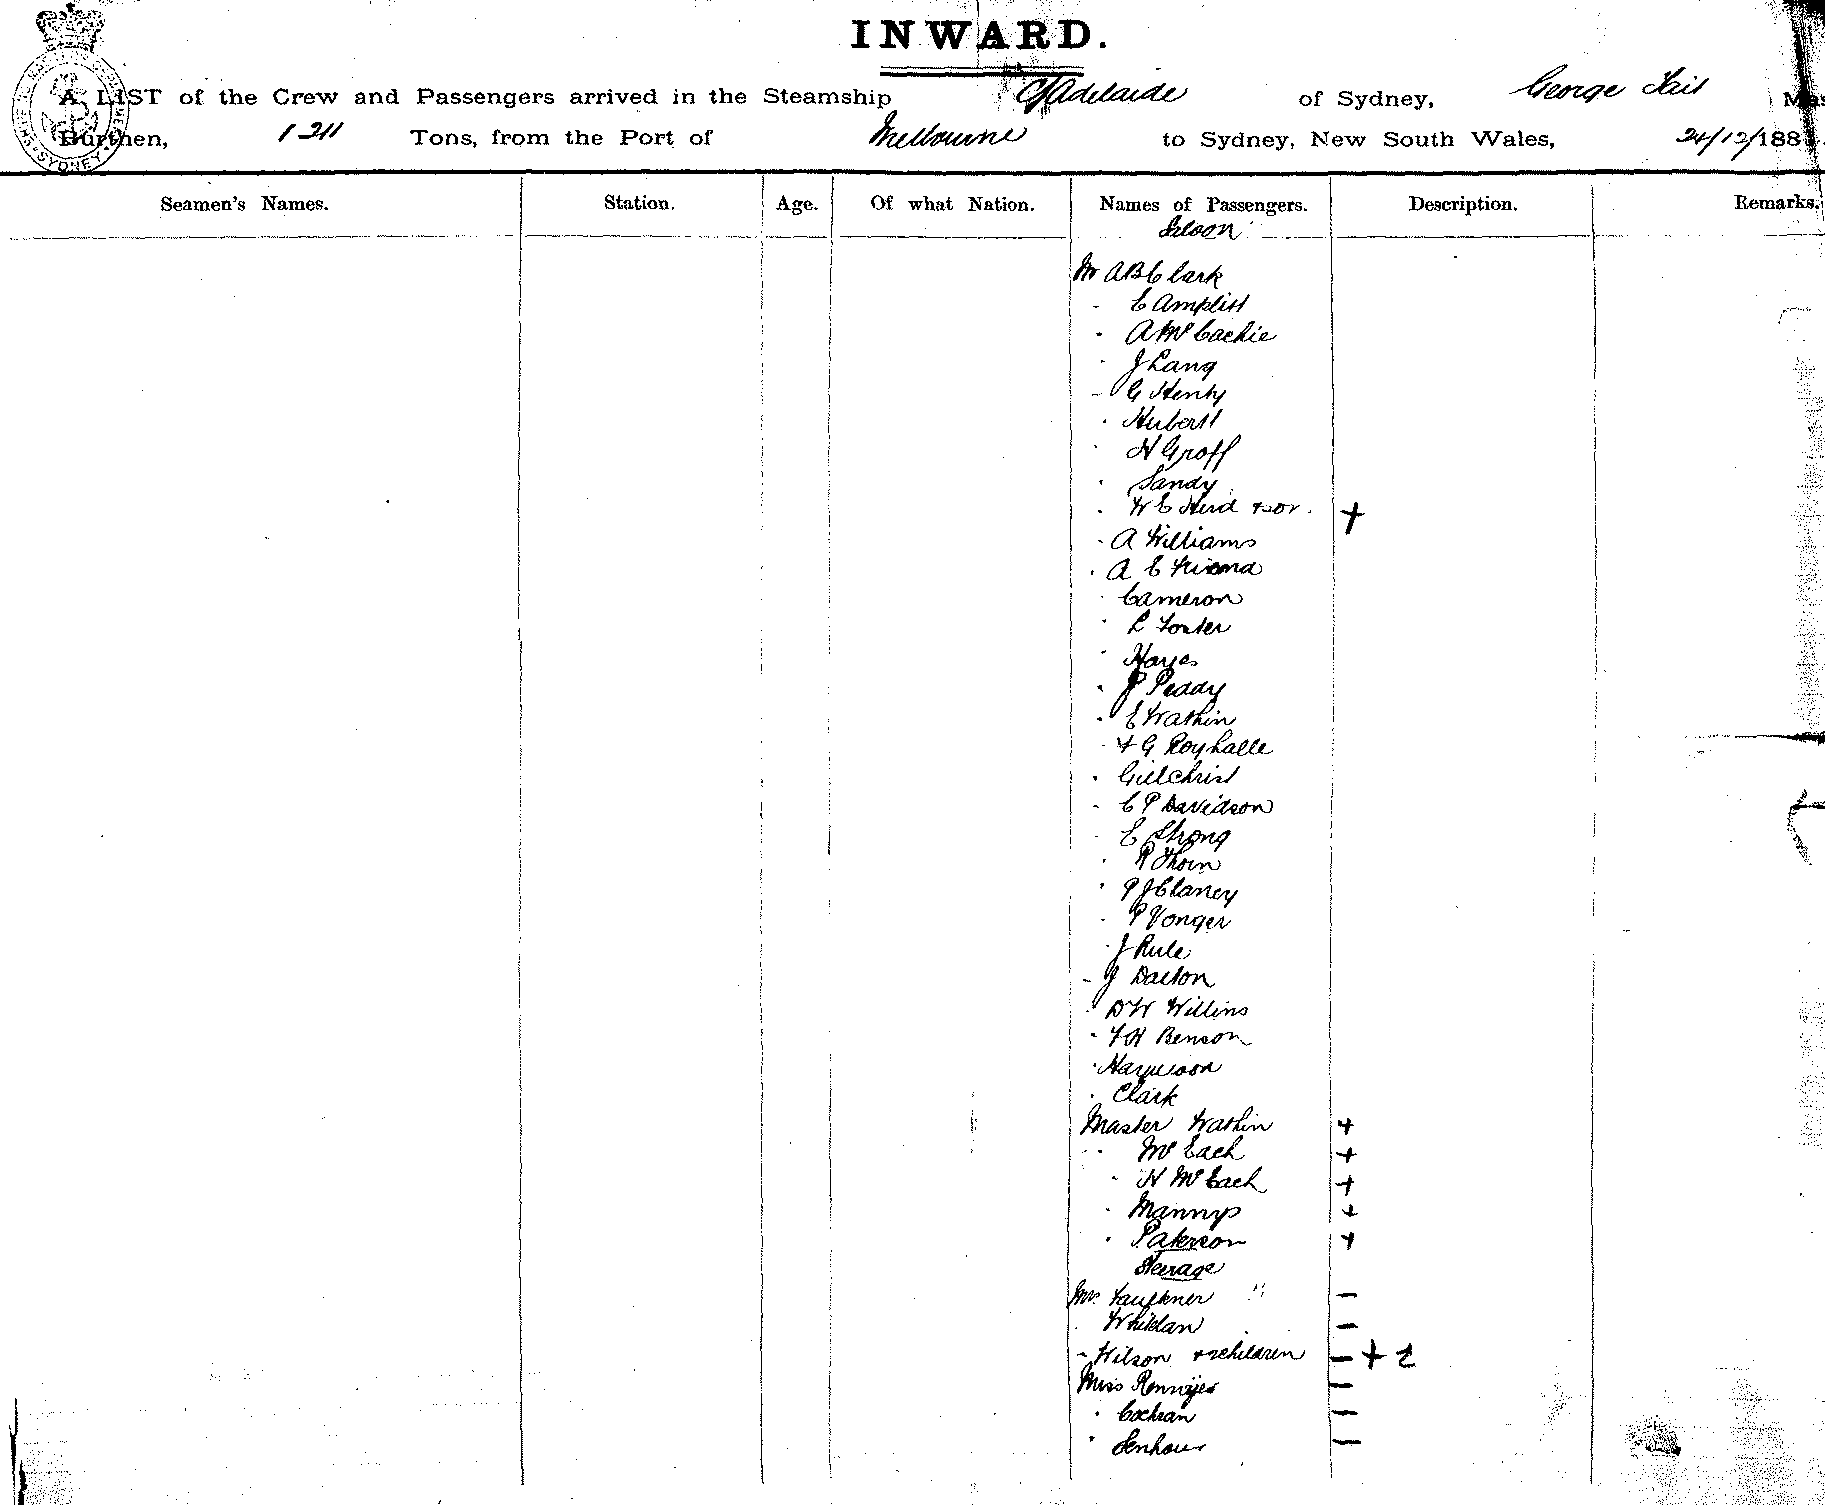 INWARD.
A LIST of the Crew and Passengers arrived in the Steamship C/Adelaide of Sydney, George Tait
Burthen, 1211 Tons, from the Port of Melbourne to Sydney, New South Wales, 24/12/188
Seamen's Names. Station. Age. Of what Nation. Names of Passengers. Description. Remarks.
Saloon
Mr A B Clark
- E Amplitt
" A McCachie
" J Lang
- G Henty
" Hubert
" H Groff
" Sandy
" W E Hurd + son. +
" A Williams
" A E Friend
" Cameron
" L Foster
" Hayes
" P Peddy
" E Wathin
" F G Royhalle
" Gilchrist
- C P Davidson
- E Strong
" R Thorn
" P J Clancy
" P Vonger
" J Rule
- J Dalton
" D W Willins
" F H Benson
" Haywoon
" Clark
Master Wathin +
" McEach +
" H McEach +
" Mannys +
" Paterson +
Steerage
Mrs Faulkner —
" Whitelan —
- Wilson + 2 children — + 2
Miss —
" Cochran —
" —